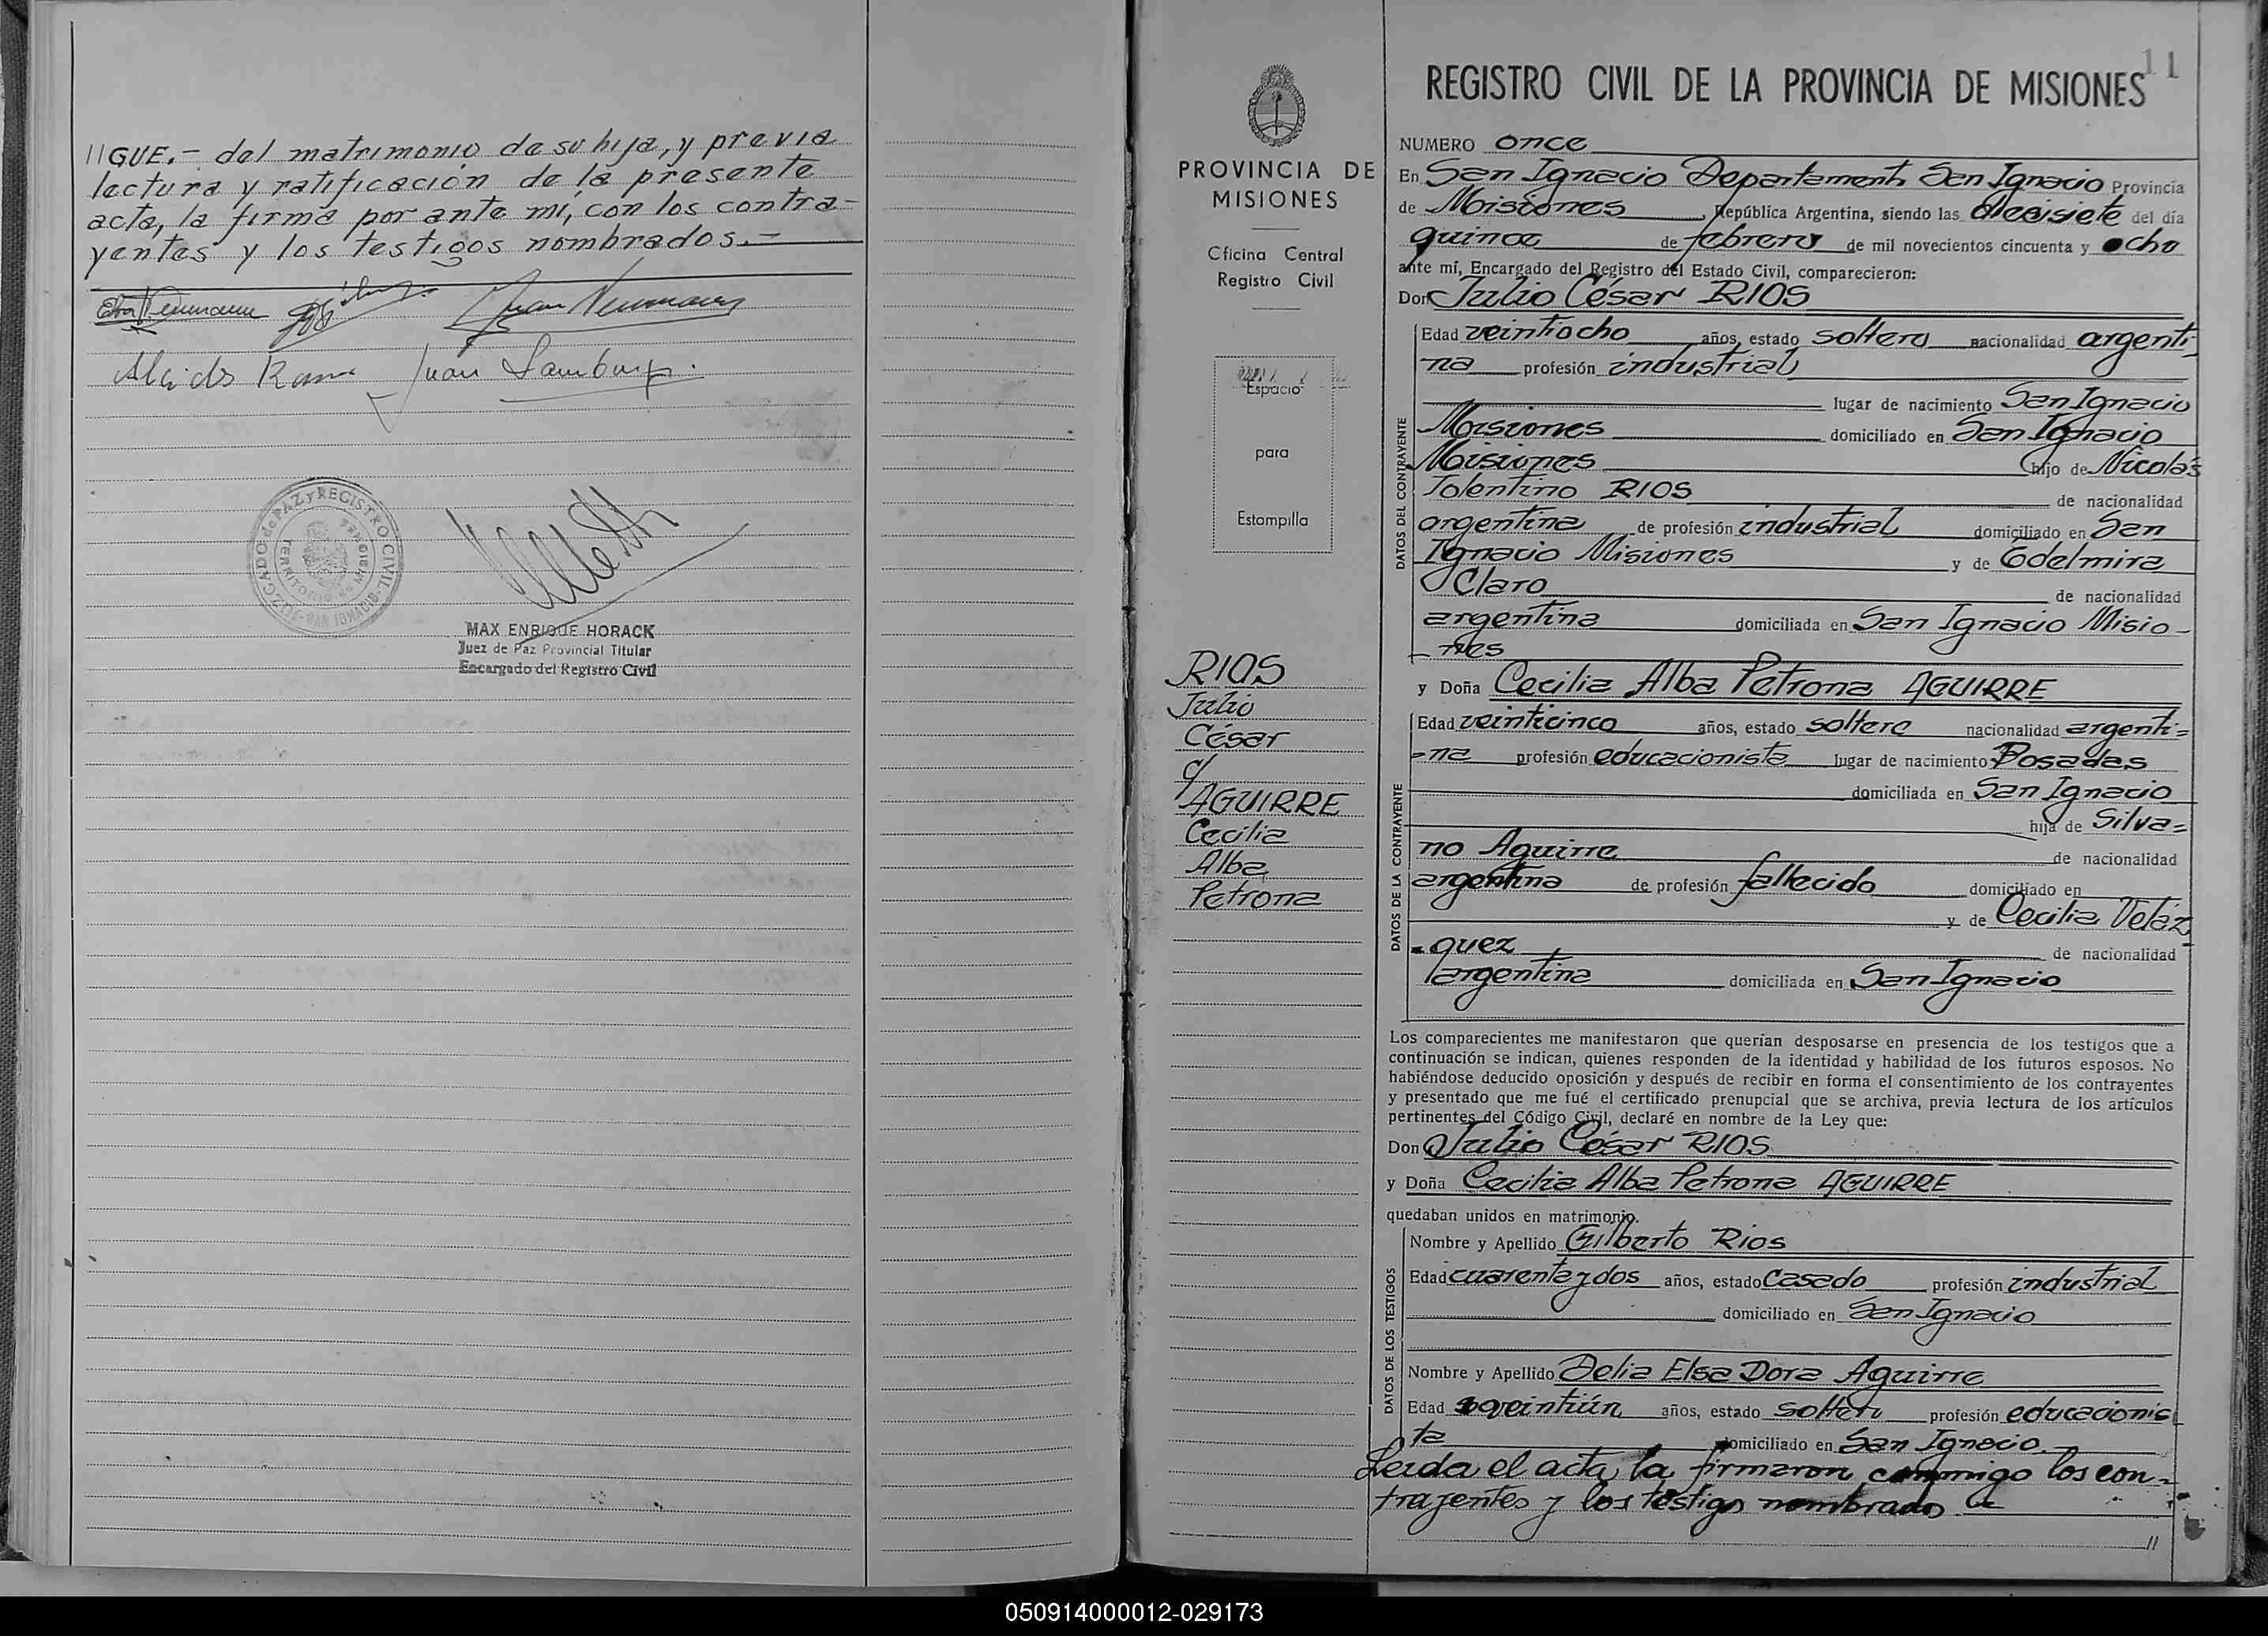 //GUE.- del matrimonio de su hija, y previa
lectura y ratificación de la presente
acta, la firma por ante mí, con los contra-
yentes y los testigos nombrados.-
Juan Neumann
Juan
JUZGADO de PAZ y REGISTRO CIVIL - SAN IGNACIO
TERRITORIO DE MISIONES
MAX ENRIQUE HORACK
Juez de Paz Provincial Titular
Encargado del Registro Civil
11
PROVINCIA DE
MISIONES
Oficina Central
Registro Civil
Espacio
para
Estampilla
RIOS
Julio
César
c/
AGUIRRE
Cecilia
Alba
Petrona
REGISTRO CIVIL DE LA PROVINCIA DE MISIONES
NUMERO once
En San Ignacio Departamento San Ignacio Provincia
de Misiones, República Argentina, siendo las diecisiete del día
quince de febrero de mil novecientos cincuenta y ocho
ante mí, Encargado del Registro del Estado Civil, comparecieron:
Don Julio César RIOS
DATOS DEL CONTRAYENTE
Edad veintiocho años, estado soltero nacionalidad argenti-
na profesión industrial
lugar de nacimiento San Ignacio
Misiones domiciliado en San Ignacio
Misiones hijo de Nicolás
Tolentino RIOS de nacionalidad
argentina de profesión industrial domiciliado en San
Ignacio Misiones y de Edelmira
Claro de nacionalidad
argentina domiciliada en San Ignacio Misio-
nes
y Doña Cecilia Alba Petrona AGUIRRE
DATOS DE LA CONTRAYENTE
Edad veinticinco años, estado soltera nacionalidad argenti=
=na profesión educacionista lugar de nacimiento Posadas
domiciliada en San Ignacio
hija de Silva=
no Aguirre de nacionalidad
argentina de profesión fallecido domiciliado en
y de Cecilia Veláz
=quez de nacionalidad
argentina domiciliada en San Ignacio
Los comparecientes me manifestaron que querían desposarse en presencia de los testigos que a
continuación se indican, quienes responden de la identidad y habilidad de los futuros esposos. No
habiéndose deducido oposición y después de recibir en forma el consentimiento de los contrayentes
y presentado que me fué el certificado prenupcial que se archiva, previa lectura de los artículos
pertinentes del Código Civil, declaré en nombre de la Ley que:
Don Julio César RIOS
y Doña Cecilia Alba Petrona AGUIRRE
quedaban unidos en matrimonio.
DATOS DE LOS TESTIGOS
Nombre y Apellido Gilberto Rios
Edad cuarenta y dos años, estado Casado profesión industrial
domiciliado en San Ignacio
Nombre y Apellido Delia Elsa Dora Aguirre
Edad veintiún años, estado soltera profesión educacionis
ta domiciliado en San Ignacio.
Leida el acta, la firmaron conmigo los con-
trayentes y los testigos nombrados
//
050914000012-029173